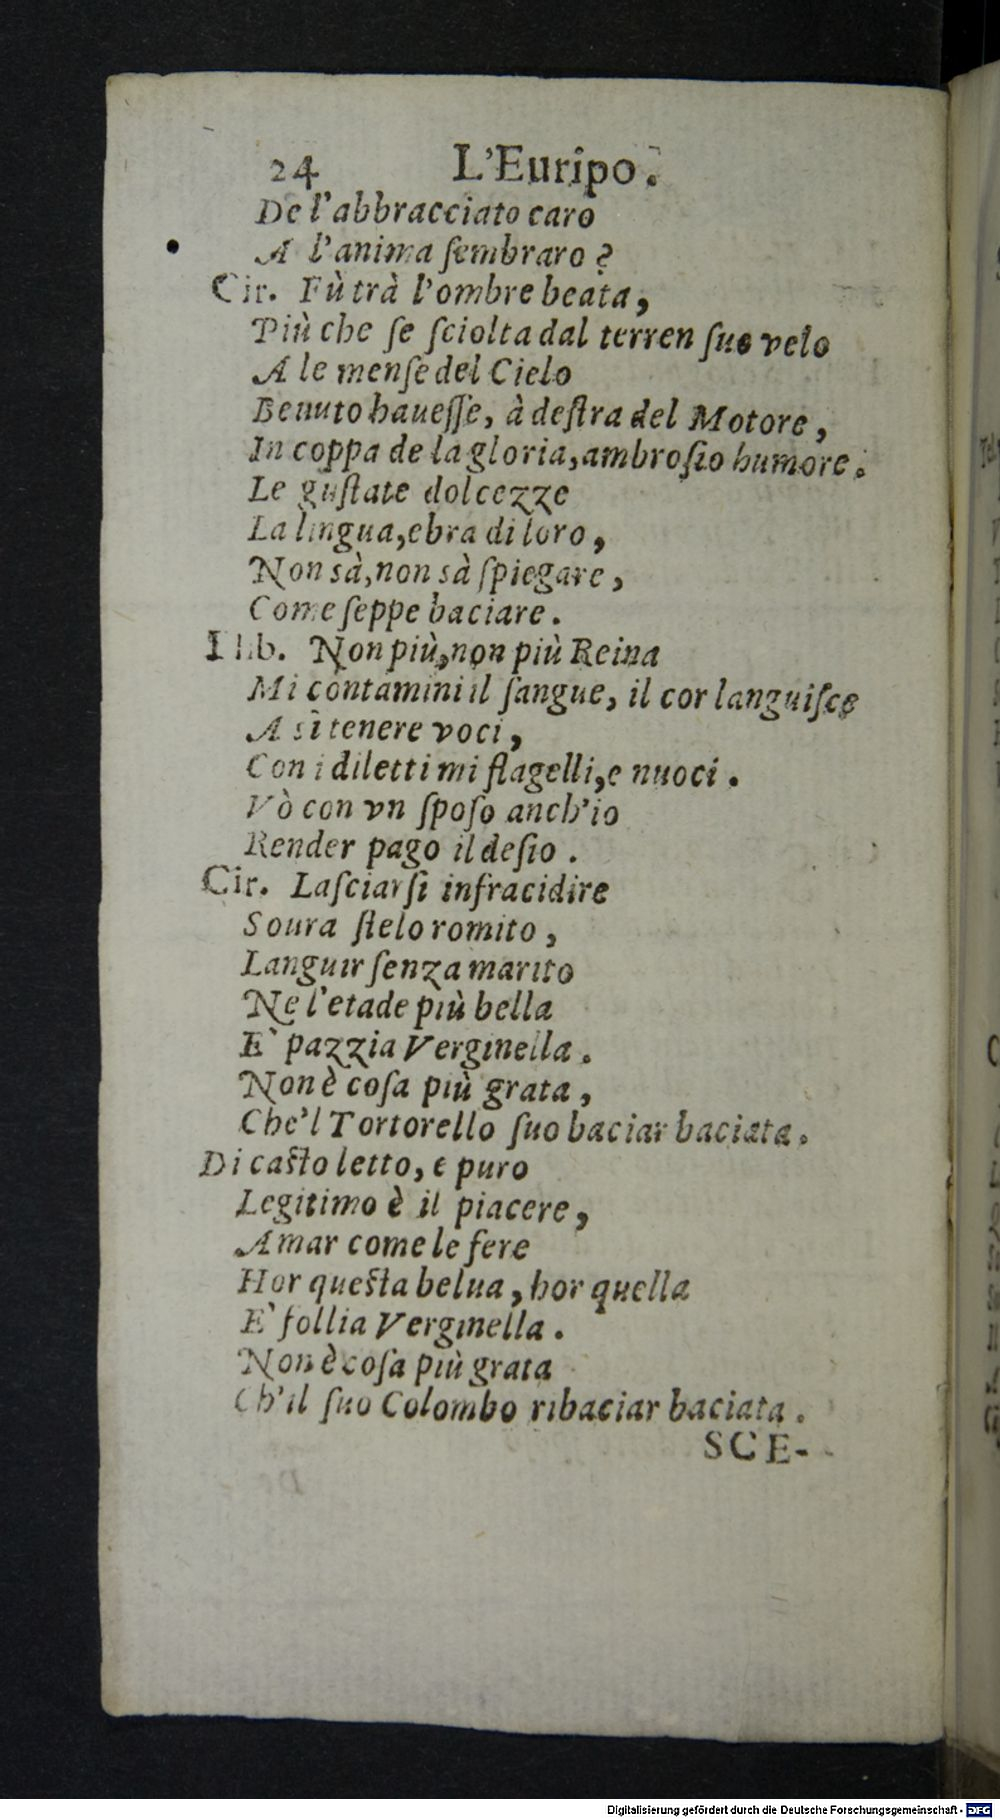 24 L'Euripo.
De l'abbracciato caro
A l'anima ſembraro?
Cir. Fù trà l'ombre beata,
Più che ſe ſciolta dal terren ſuo velo
A le menſe del Cielo
Beuuto haueſſe, à deſtra del Motore,
In coppa de la gloria, ambroſio humore.
Le guſtate dolcezze
La lingua, ebra di loro,
Non sà, non sà ſpiegare,
Come ſeppe baciare.
Non più, non più Reina
Mi contamini il ſangue, il cor languiſce
A sì tenere voci,
Con i diletti mi flagelli, e nuoci.
Vò con vn ſpoſo anch'io
Render pago il deſio.
Cir. Laſciarſi infracidire
Soura ſtelo romito,
Languir ſenza marito
Ne l'etade più bella
E' pazzia Verginella.
Non è coſa più grata,
Che'l Tortorello ſuo baciar baciata.
Di caſto letto, e puro
Legitimo è il piacere,
Amar come le fere
Hor queſta belua, hor quella
E' follia Verginella.
Non è coſa più grata
Ch'il ſuo Colombo ribaciar baciata.
SCE-
Digitalisierung gefördert durch die Deutsche Forschungsgemeinschaft - DFG